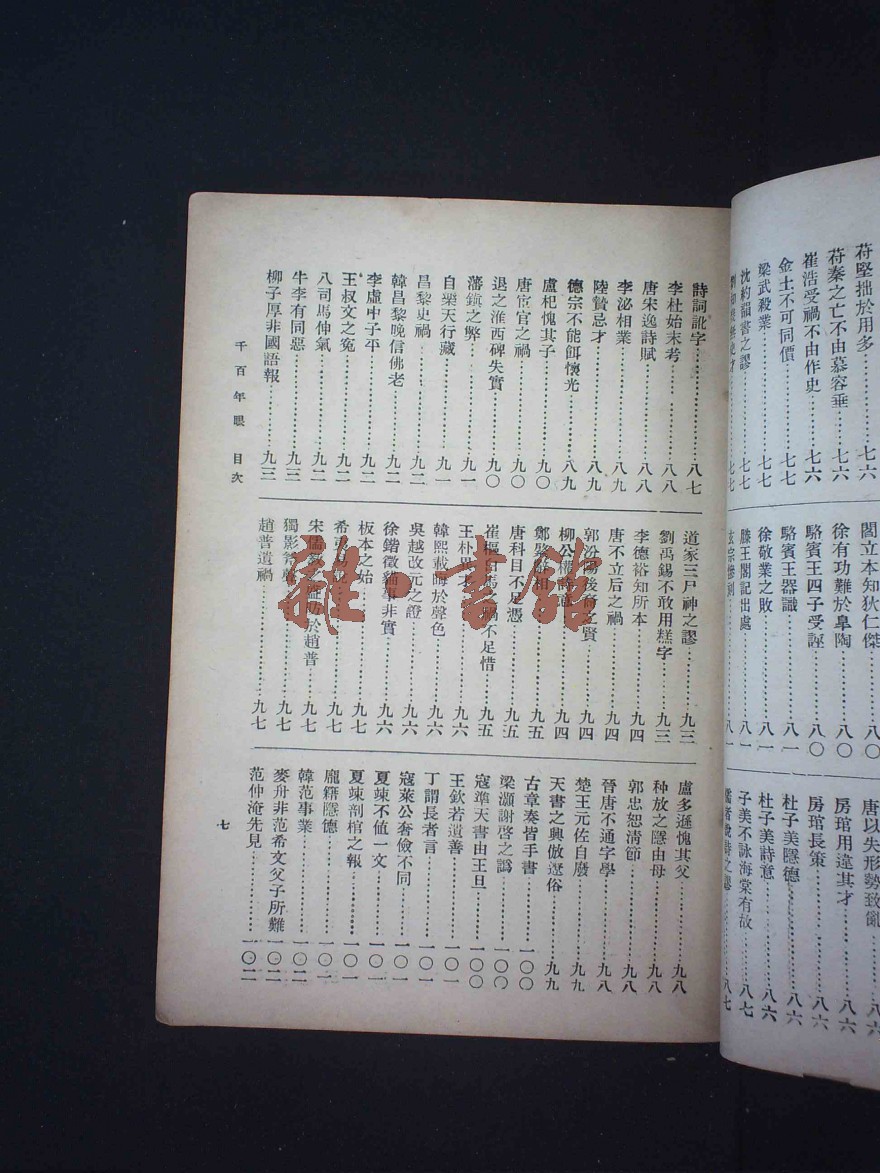 苻堅拙於用多⋯⋯七六
苻秦之亡不由慕容垂⋯⋯七六
崔浩受禍不由作史⋯⋯七六
金土不可同價⋯⋯七七
梁武殺業⋯⋯七七
沈約韻書之謬⋯⋯七七
閻立本知狄仁傑⋯⋯八〇
徐有功難於臯陶⋯⋯八〇
駱賓王四子受誣⋯⋯八〇
駱賓王器識⋯⋯八一
徐敬業之敗⋯⋯八一
滕王閣記出處⋯⋯八一
玄宗慘刻⋯⋯八一
唐以失形勢致亂⋯⋯八六
房琯用違其才⋯⋯八六
房琯長策⋯⋯八六
杜子美隱德⋯⋯八六
杜子美詩意⋯⋯八六
子美不詠海棠有故⋯⋯八七
儒者說詩之謬⋯⋯八七
詩詞訛字⋯⋯八七
李杜始末考⋯⋯八八
唐宋逸詩賦⋯⋯八八
李泌相業⋯⋯八九
陸贄忌才⋯⋯八九
德宗不能餌懷光⋯⋯八九
盧杞愧其子⋯⋯九〇
唐宦官之禍⋯⋯九〇
退之淮西碑失實⋯⋯九〇
藩鎮之弊⋯⋯九一
白樂天行藏⋯⋯九一
昌黎史禍⋯⋯九二
韓昌黎晚信佛老⋯⋯九二
李虛中子平⋯⋯九二
王叔文之寃⋯⋯九二
八司馬伸氣⋯⋯九二
牛李有同惡⋯⋯九三
柳子厚非國語報⋯⋯九三
道家三尸神之謬⋯⋯九三
劉禹錫不敢用糕字⋯⋯九三
李德裕知所本⋯⋯九四
唐不立后之禍⋯⋯九四
郭汾陽後裔之賢⋯⋯九四
柳公權詩意⋯⋯九四
鄭綮辭相⋯⋯九五
唐科目不足憑⋯⋯九五
崔樞白馬之禍不足惜⋯⋯九五
王朴異才⋯⋯九六
韓熙載晦於聲色⋯⋯九六
吳越改元之證⋯⋯九六
徐鍇徵貓事非實⋯⋯九六
板本之始⋯⋯九七
希夷易說⋯⋯九七
宋儒敎之盛昉於趙普⋯⋯九七
燭影斧聲⋯⋯九七
趙普遺禍⋯⋯九七
盧多遜愧其父⋯⋯九八
种放之隱由母⋯⋯九八
郭忠恕淸節⋯⋯九八
晉唐不通字學⋯⋯九八
楚王元佐自廢⋯⋯九九
天書之興倣遼俗⋯⋯九九
古章奏皆手書⋯⋯一〇〇
梁灝謝啓之譌⋯⋯一〇〇
寇準天書由王旦⋯⋯一〇〇
王欽若遺善⋯⋯一〇一
丁謂長者言⋯⋯一〇一
寇萊公奢儉不同⋯⋯一〇一
夏竦不值一文⋯⋯一〇一
夏竦剖棺之報⋯⋯一〇一
龐籍隱德⋯⋯一〇一
韓范事業⋯⋯一〇二
麥舟非范希文父子所難⋯⋯一〇二
范仲淹先見⋯⋯一〇二
千百年眼 目次
七
雜書館